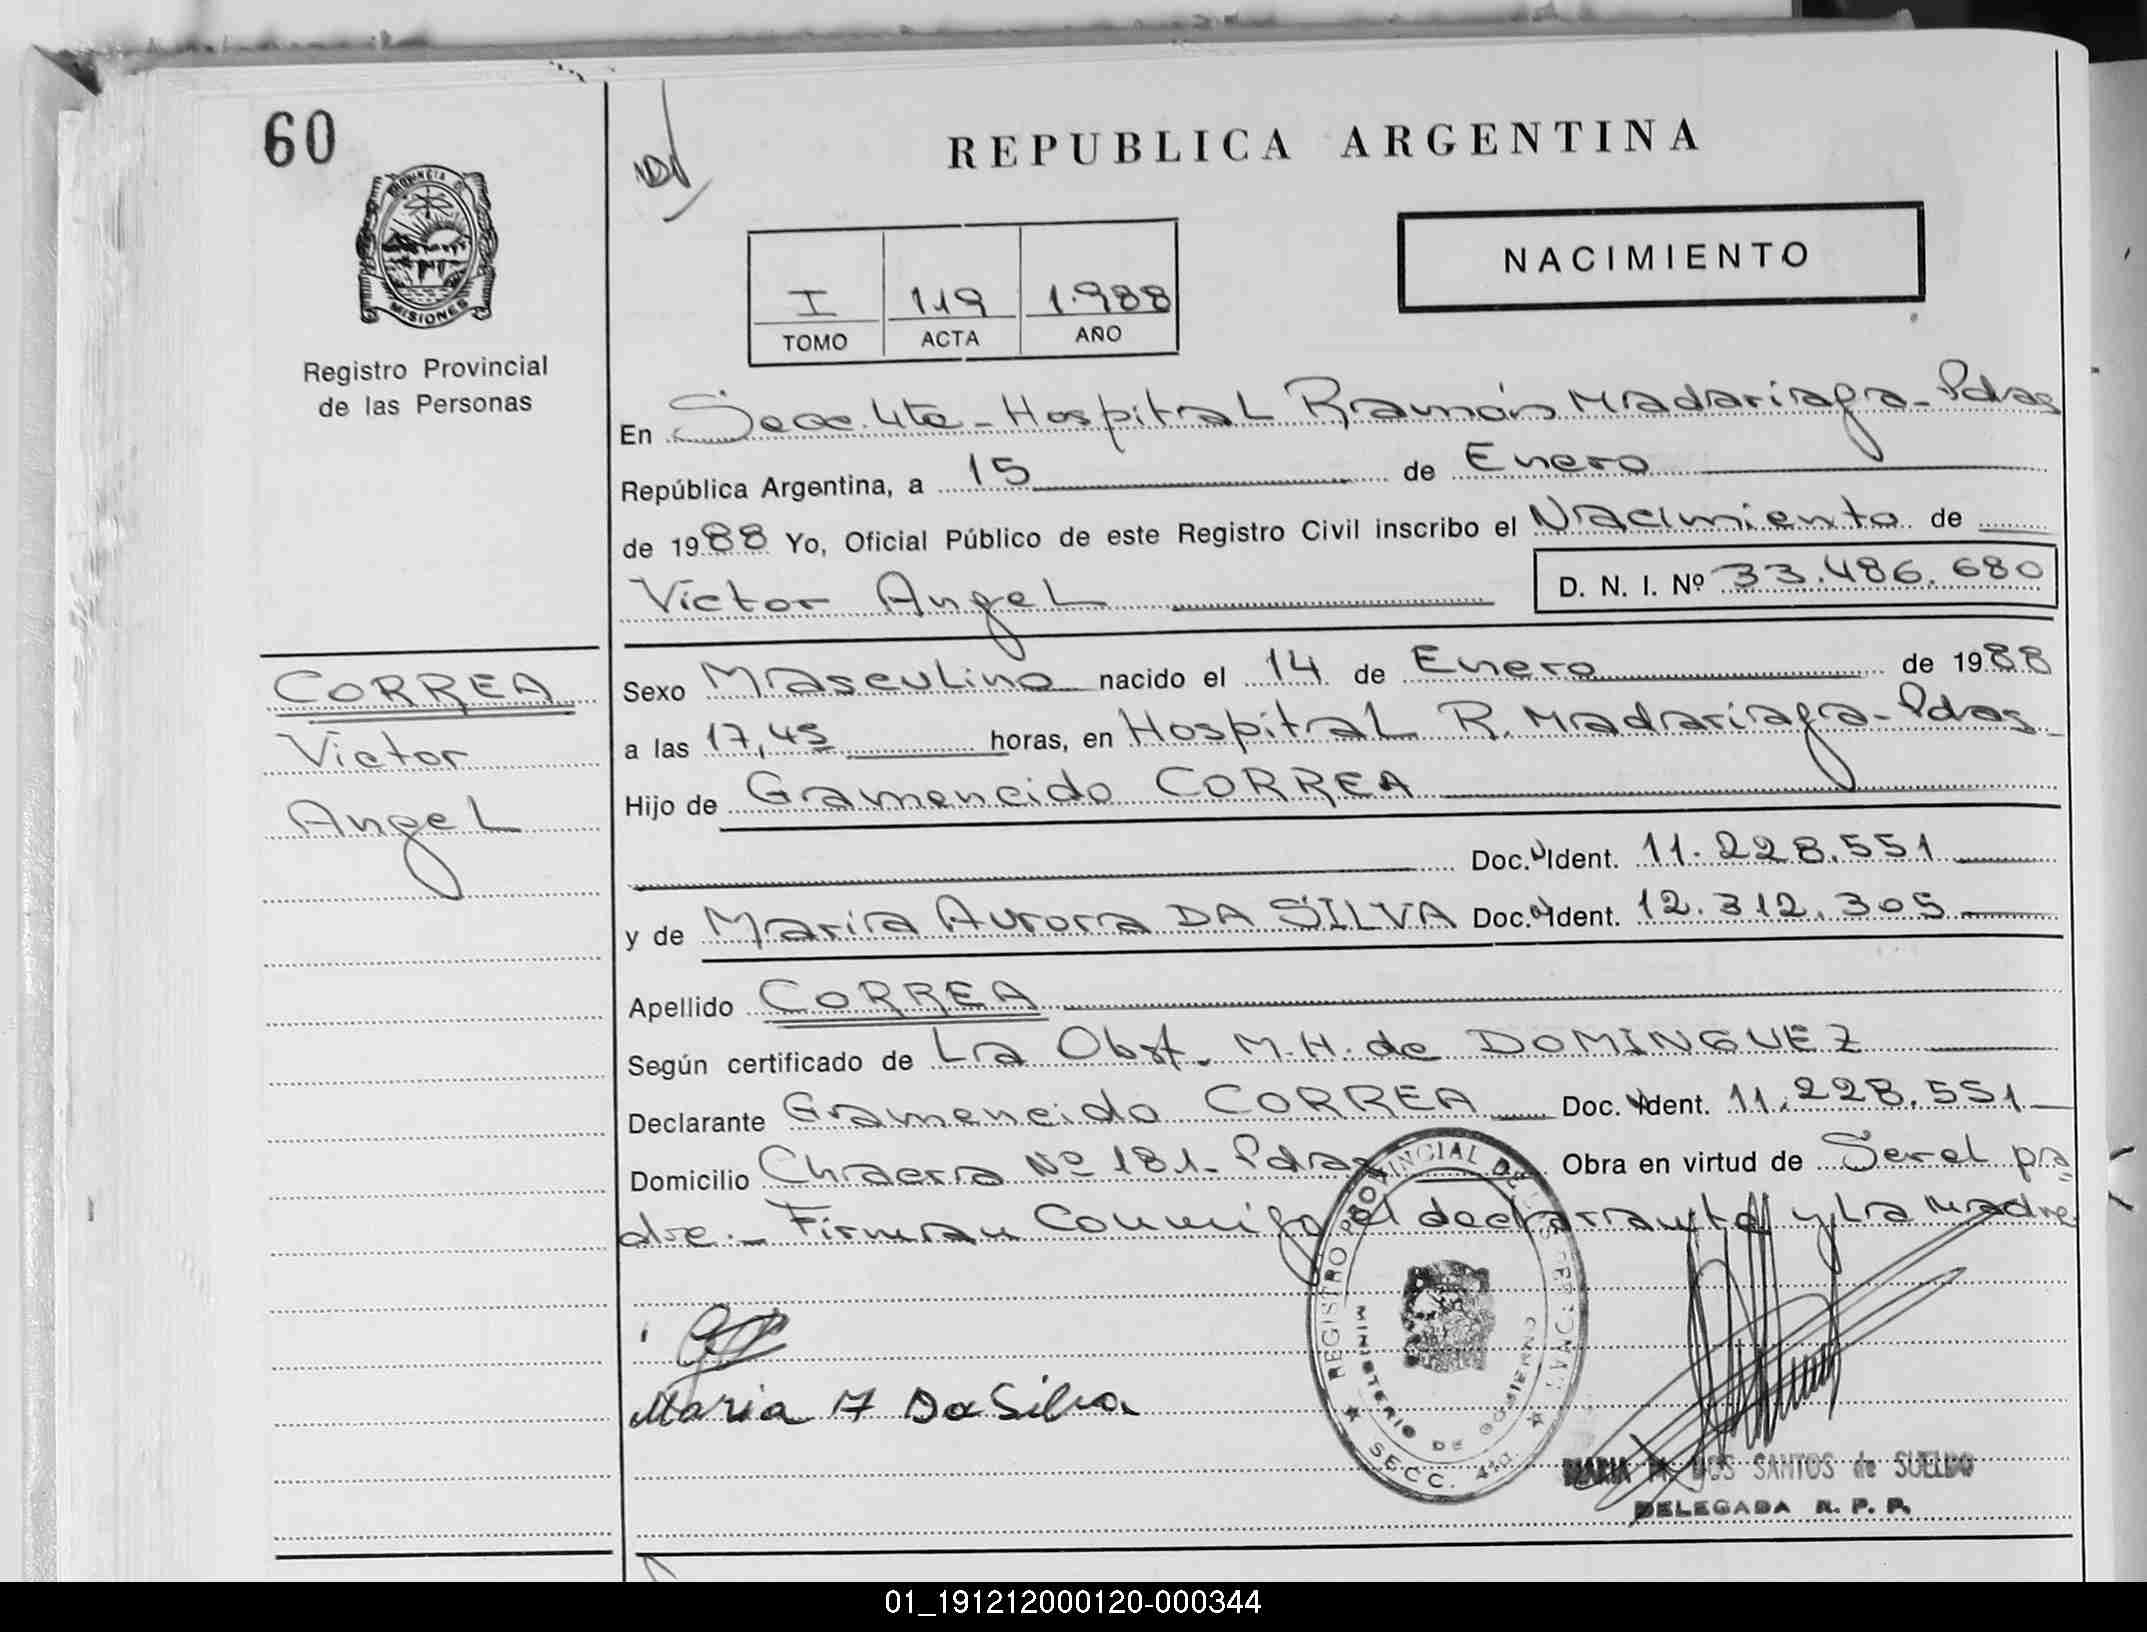 60
PROVINCIA D
MISIONES
Registro Provincial
de las Personas
REPUBLICA ARGENTINA
NACIMIENTO
I 119 1.988
TOMO ACTA AÑO
En Secc. 4ta - Hospital Ramón Madariaga - Pdas
República Argentina, a 15 de Enero
de 1988 Yo, Oficial Público de este Registro Civil inscribo el Nacimiento de
Victor Angel D. N. I. Nº 33.486.680
CORREA
Victor
Angel
Sexo Masculino nacido el 14 de Enero de 1988
a las 17,45 horas, en Hospital R. Madariaga - Pdas
Hijo de Gramencido CORREA
Doc. Ident. 11.228.551
y de Maria Aurora DA SILVA Doc. Ident. 12.312.305
Apellido CORREA
Según certificado de La Obst. M.H. de DOMINGUEZ
Declarante Gramencido CORREA Doc. Ident. 11.228.551
Domicilio Chacra Nº 181 - Pdas Obra en virtud de Ser el pa-
dre. - Firman Conmigo el declarante y La Madre
REGISTRO PROVINCIAL DE LAS PERSONAS
MINISTERIO DE GOBIERNO
SECC. 4ta.
Maria A Da Silva
MARIA DOS SANTOS de SUELDO
DELEGADA R. P. P.
01_191212000120-000344